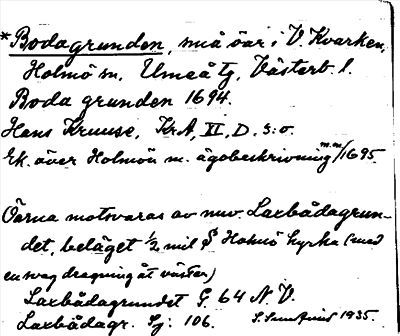 *Bodagrunden, små öar i V. Kvarken,
Holmö sn, Umeå tg, Västerb. l.
Boda grunden 1694.
Hans Kruuse, KrA, XI, D. s:o.
Ek. över Holmön m. ägobeskrivning m.m./1695.
Öarna motsvaras av nuv. Laxbådagrun-
det, beläget ½ mil S Holmö kyrka (med
en svag dragning åt väster)
Laxbådagrundet G. 64 N. V.
Laxbådagr. Sj: 106. 1935.